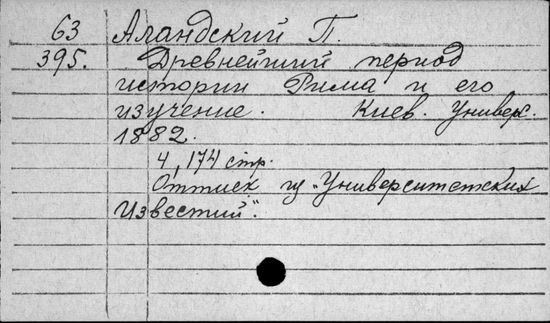 63 Аландский П.
395. Древнейший период
истории Рима и его
изучение. Киев. Универс.
1882.
4, 174 стр.
Оттиск из „Университетских
Известий".